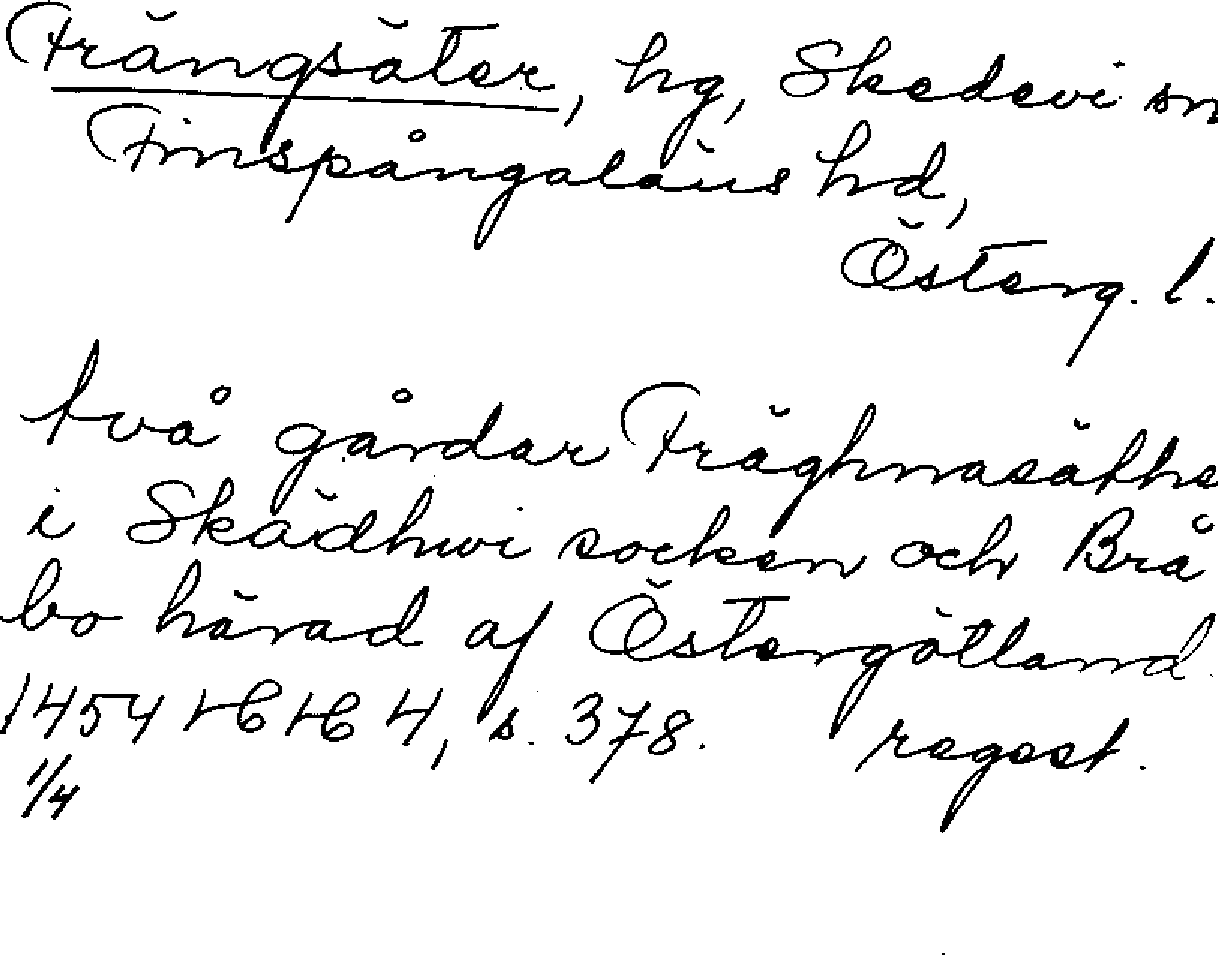 Frängsäter, hg, Skedevi sn
Finspångaläns hd,
Österg. l.
två gårdar Fräghnasäthe
i Skädhwi socken och Brå
bo härad af Östergötland.
1454 HCHC 4, s. 378. regest.
1/4